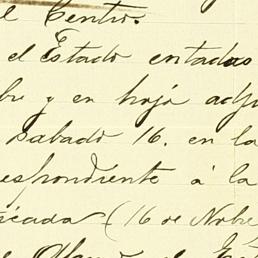 el Centro.
el Estado entradas
bre y en hoja adju
sabado 16. en la
respondiente á la
icada (16 de Nobre